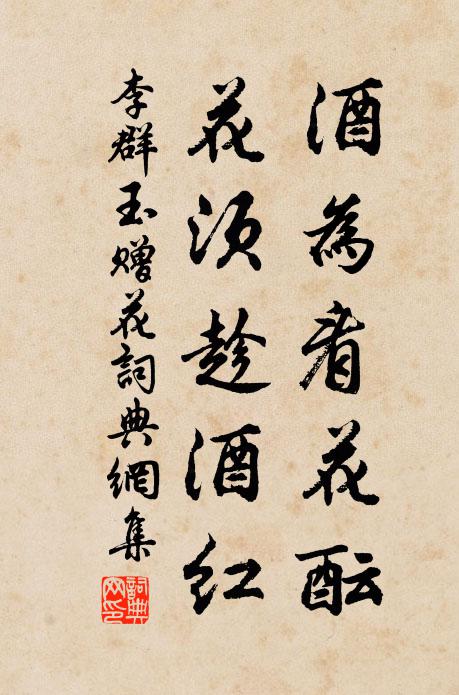 酒為看花酝
花須趁酒紅
李群玉赠花詞典網集
詞典
网印